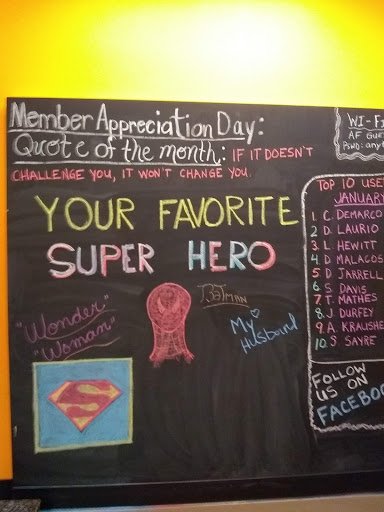 Member Appreciation Day:
Quote of the month: IF IT DOESN'T
CHALLENGE YOU, IT WON'T CHANGE YOU.
YOUR FAVORITE
SUPER HERO
"Wonder"
"Woman"
BATMAN
My
Husband
S
WI-FI
AF GUE
PSWD: any
TOP 10 USE
JANUARY
1. C. DEMARCO
2 D. LAURIO
3. L. HEWITT
4. D MALACOS
5 D JARRELL
6 S DAVIS
7 T. MATHES
8 J DURFEY
9. A. KRAUSHE
10 S SAYRE
FOLLOW
US ON
FACEBOO